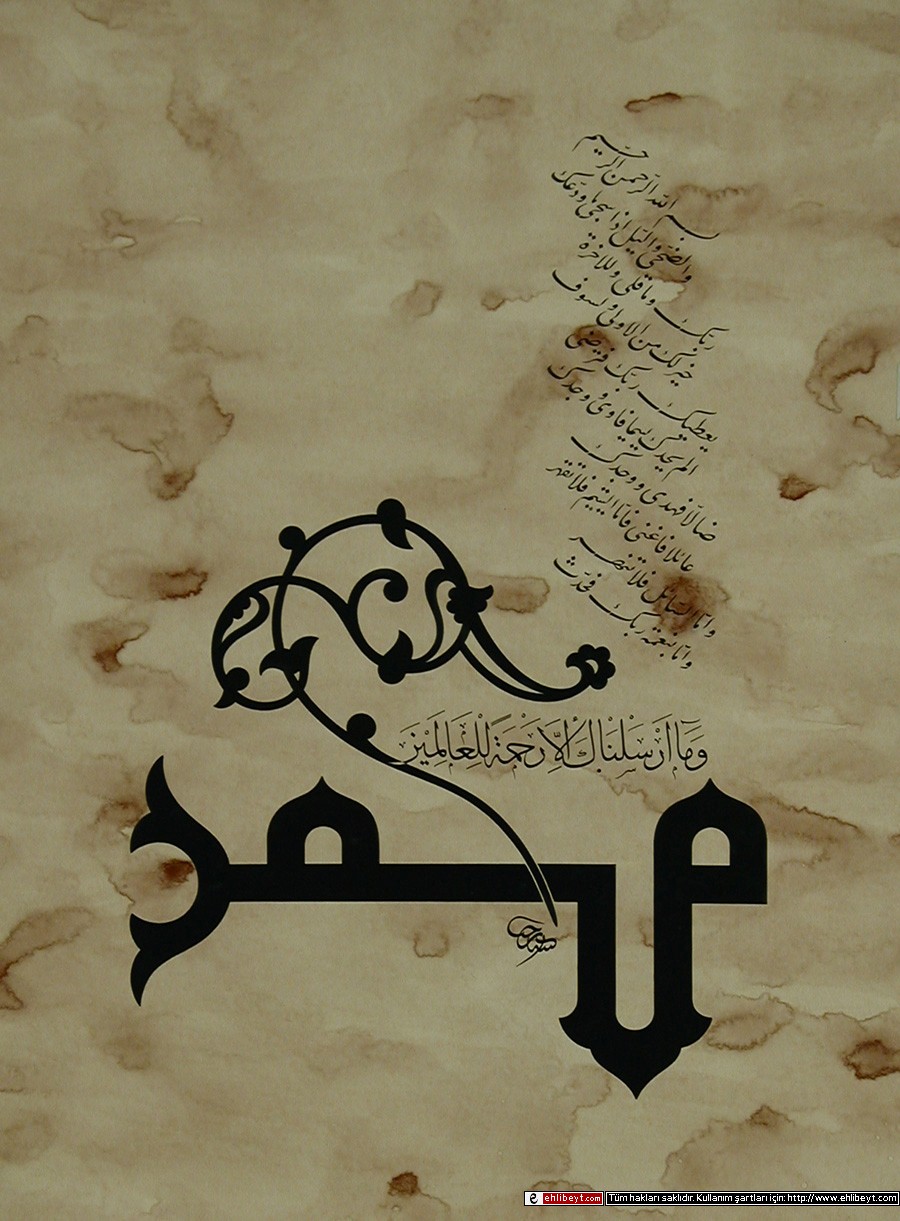 بسم الله الرّحمن الرّحیم
والضّحی واللّیل اذا سجی ما ودّعک
ربّک وما قلی وللاخرة
خیر لک من الاولی ولسوف
یعطیک ربّک فترضی
الم یجدک یتیما فاوی و وجدک
ضالّا فهدی و وجدک
عائلا فاغنی فامّا الیتیم فلا تقهر
وامّا السّائل فلا تنهر
وامّا بنعمة ربّک فحدّث
وَمَا أَرْسَلْنَاكَ إِلَّا رَحْمَةً لِلْعَالَمِينَ
محمد
ehlibeyt.com Tüm hakları saklıdır. Kullanım şartları için: http://www.ehlibeyt.com